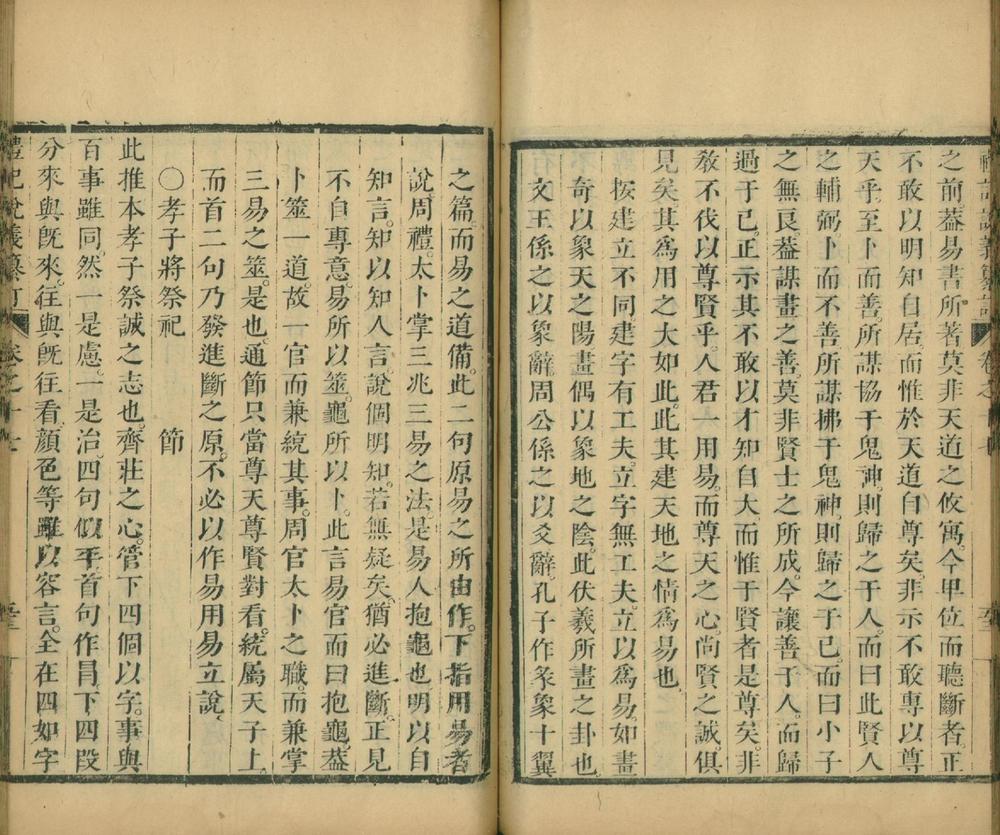 之前葢易書所著莫非天道之攸寓今卑位而聽斷者正
不敢以明知自居而惟於天道自尊矣非示不敢專以尊
天乎至卜而善所謀協于鬼神則歸之于人而曰此賢人
之輔弼卜而不善所謀拂于鬼神則歸之于已而曰小子
之無良葢謀畫之善莫非賢士之所成今讓善于人而歸
過于已正示其不敢以才知自大而惟于賢者是尊矣非
敎不伐以尊賢乎人君一用易而尊天之心尚賢之誠俱
見矣其爲用之大如此此其建天地之情爲易也
按建立不同建字有工夫立字無工夫立以爲易如畫
奇以象天之陽畫偶以象地之陰此伏羲所畫之卦也
文王係之以彖辭周公係之以爻辭孔子作彖象十翼
之篇而易之道備此二句原易之所由作下指用易者
說周禮太卜掌三兆三易之法是易人抱龜也明以自
知言知以知人言說個明知若無疑矣猶必進斷正見
不自專意易所以筮龜所以卜此言易官而曰抱龜葢
卜筮一道故一官而兼統其事周官太卜之職而兼掌
三易之筮是也通節只當尊天尊賢對看統屬天子上
而首二句乃發進斷之原不必以作易用易立說
〇孝子將祭祀　節
此推本孝子祭誠之志也齊莊之心管下四個以字事與
百事雖同然一是慮一是治四句似平首句作冒下四段
分來與旣來往與旣往看顏色等雖以容言全在四如字
禮記說義纂訂　卷之十